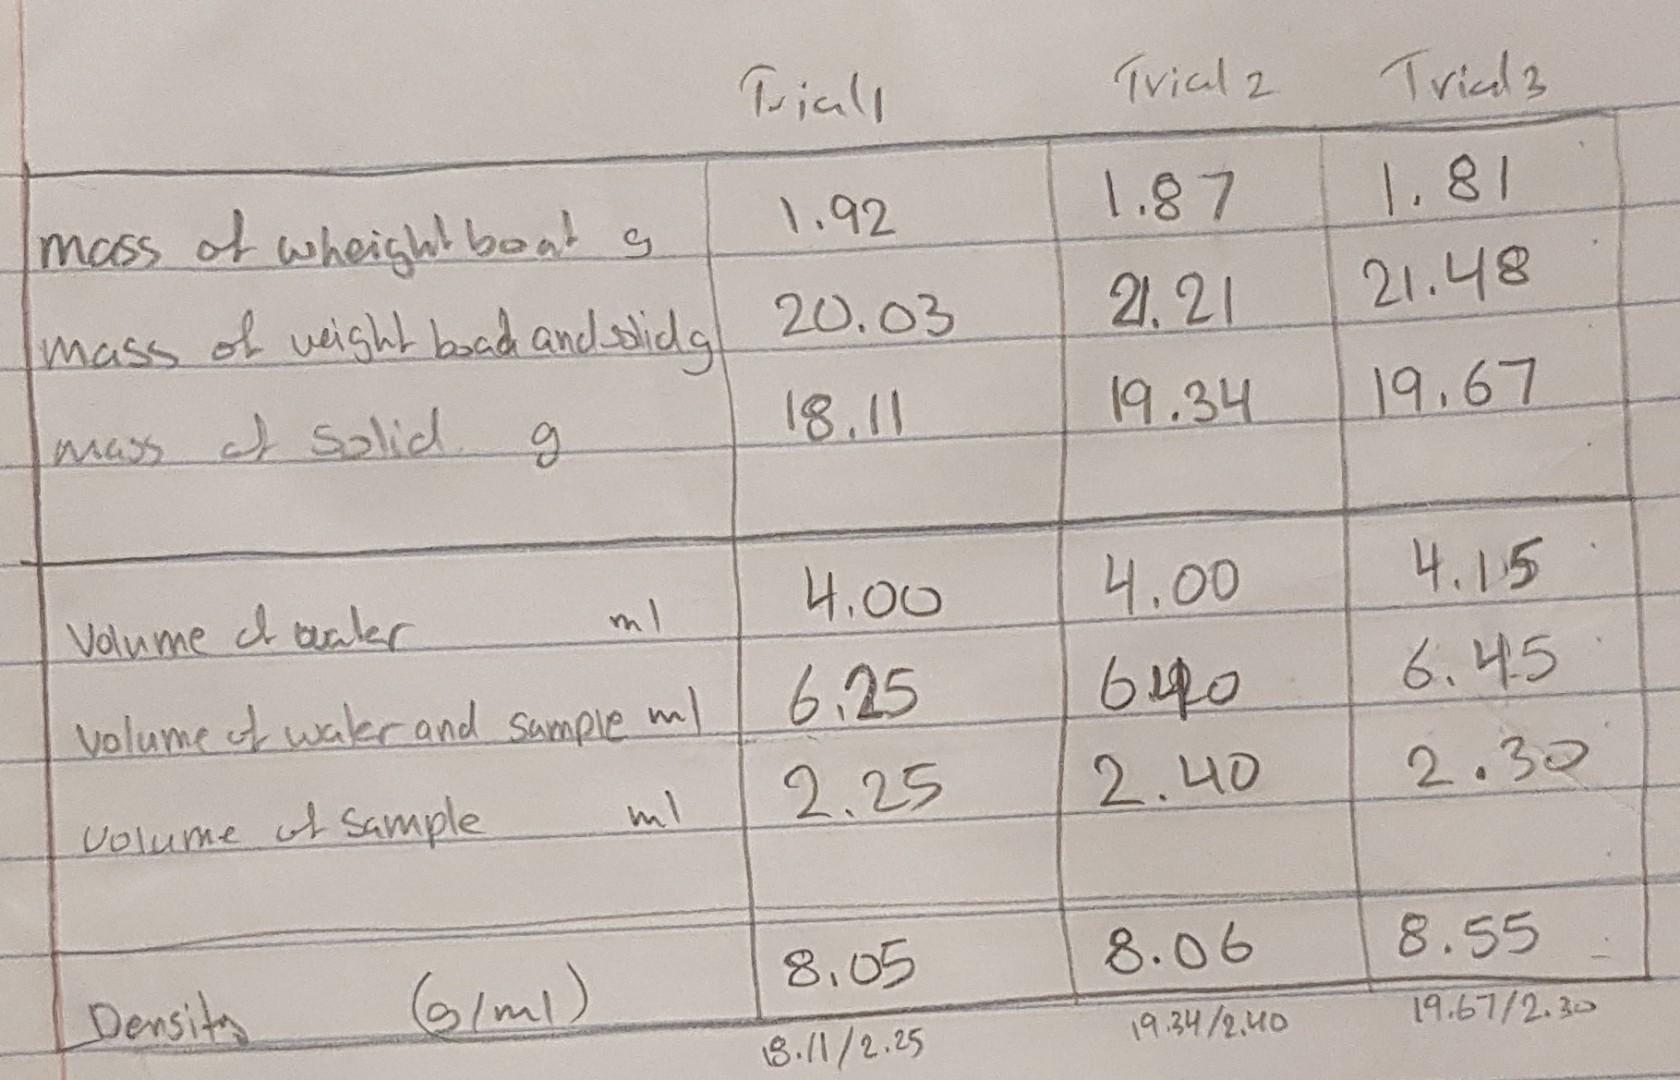 Trial 1 Trial 2 Trial 3
mass of wheight boat g 1.92 1.87 1.81
mass of weight boad and solid g 20.03 21.21 21.48
mass of solid g 18.11 19.34 19.67
Volume of water ml 4.00 4.00 4.15
Volume of water and sample ml 6.25 6.40 6.45
Volume of sample ml 2.25 2.40 2.30
Density (g/ml) 8.05 8.06 8.55
18.11/2.25 19.34/2.40 19.67/2.30